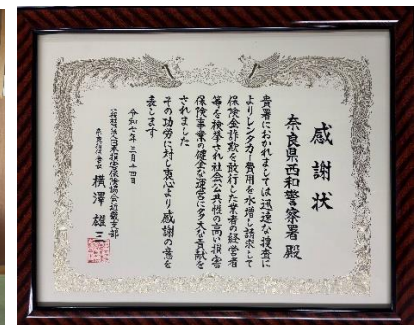 感謝状
奈良県西和警察署殿
貴署におかれましては迅速な捜査に
よりレンタカー費用を水増し請求して
保険金詐欺を敢行した業者の経営者
等を検挙され社会公共性の高い損害
保険事業の健全な運営に多大な貢献を
されました
その功労に対し衷心より感謝の意を
表します
令和七年三月十四日
一般社団法人日本損害保険協会近畿支部
横澤雄三